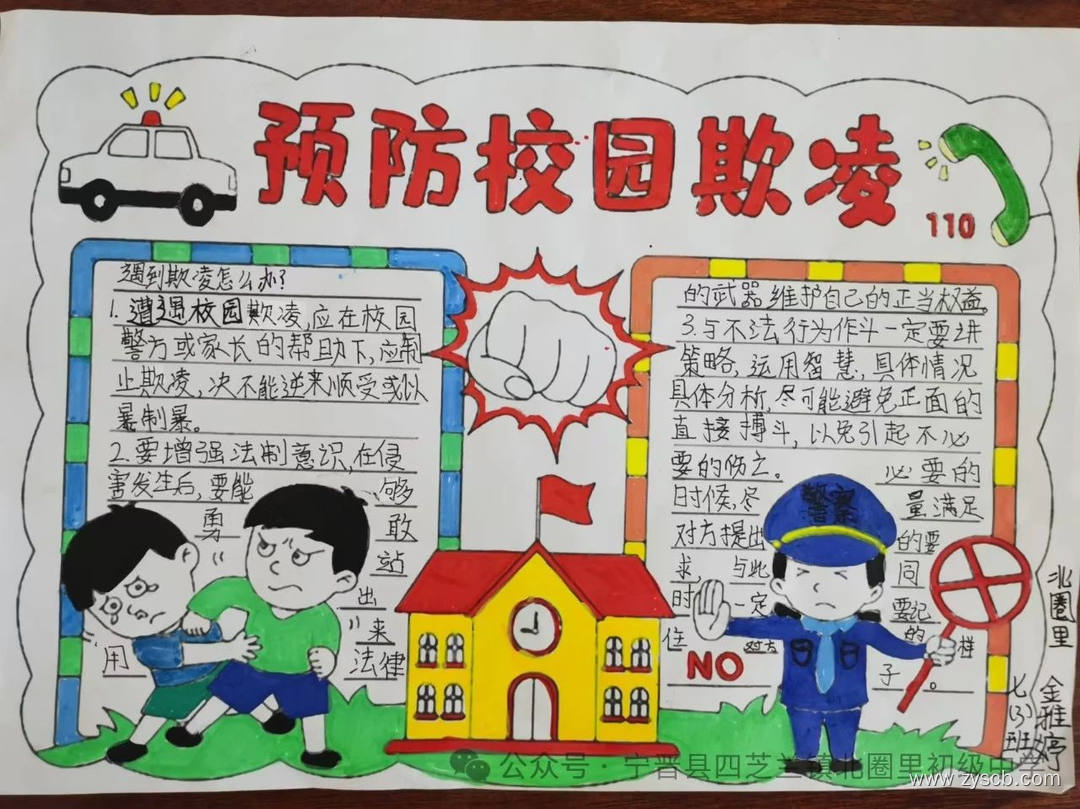 预防校园欺凌
110
遇到欺凌怎么办?
1.遭遇校园欺凌,应在校园
警方或家长的帮助下,应制
止欺凌,决不能逆来顺受或以
暴制暴。
2.要增强法制意识,在侵
害发生后,要能 够
勇 敢
站
出
来
用 法律
的武器维护自己的正当权益。
3.与不法行为作斗一定要讲
策略,运用智慧,具体情况
具体分析,尽可能避免正面的
直接搏斗,以免引起不必
要的伤亡。 必要的
时候,尽 量满足
对方提出 的要
求,与此 同
时,一定 要记
住 对方 的 样
NO 子。
警察
北圈里
七(3)班
金雅婷
公众号·宁晋县四芝兰镇北圈里初级中学
www.zyscb.com